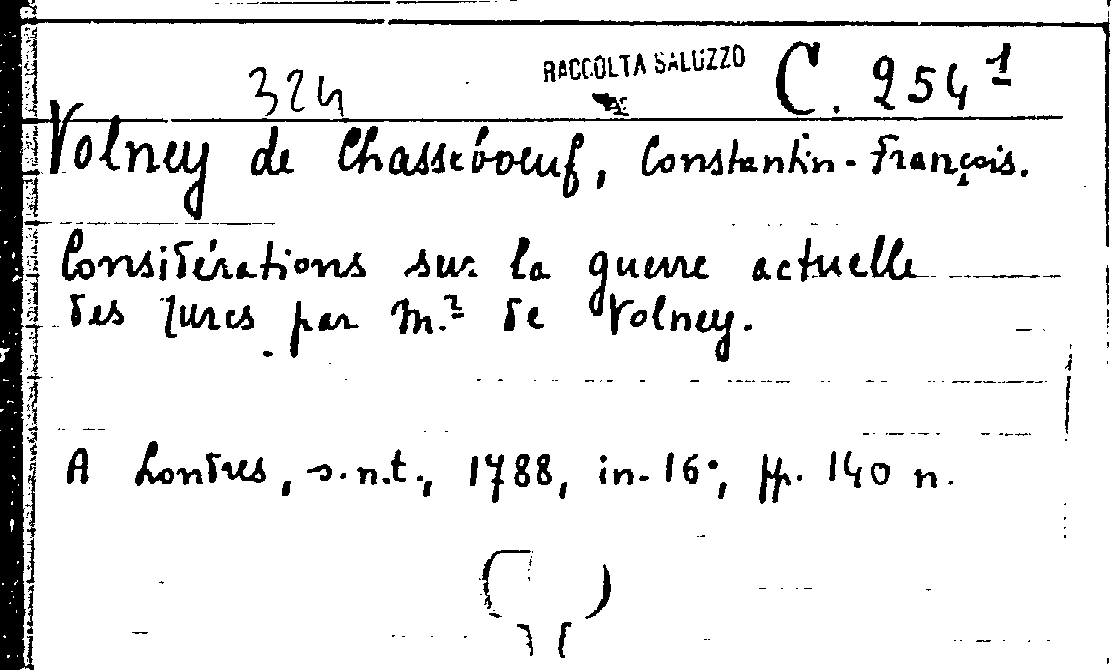 324 RACCOLTA SALUZZO C. 254¹
Volney de Chasseboeuf, Constantin-François.
Considérations sur la guerre actuelle
des Turcs par M.r de Volney.
A Londres, s.n.t., 1788, in-16°, pp. 140 n.